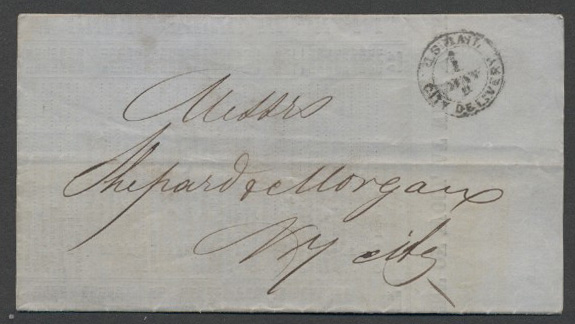 U.S MAIL
CITY DELIVERY
MAY
Messrs
Shepard & Morgan
N Y city